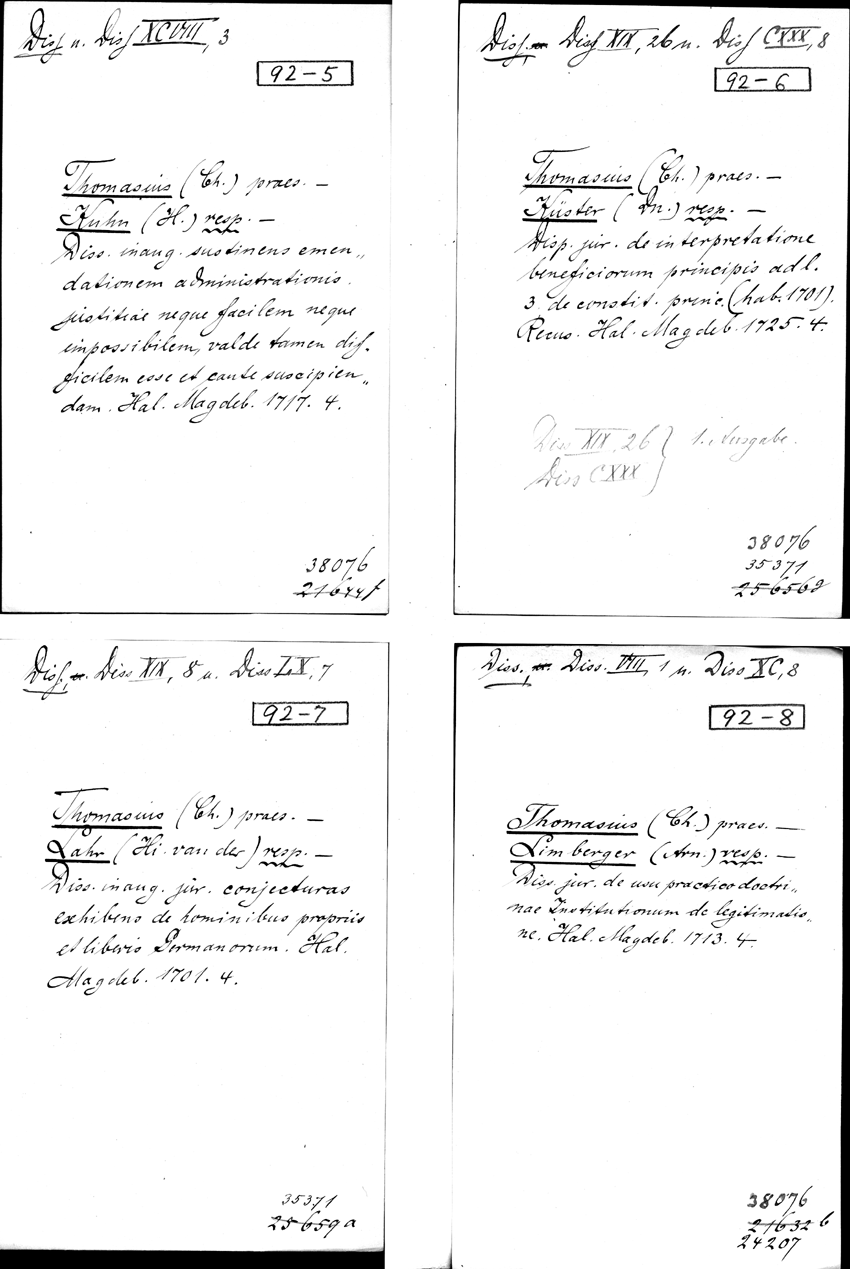 Diss u. Diss XCVIII, 3
92-5
Thomasius (Ch.) praes. —
Kuhn (H.) resp. —
Diss. inaug. sustinens emen„
dationem administrationis
justitiae neque facilem neque
impossibilem, valde tamen dif-
ficilem esse et caute suscipien„
dam. Hal. Magdeb. 1717. 4.
38076
21644f
Diss., u. Diss XIX, 26 u. Diss CXXX, 8
92-6
Thomasius (Ch.) praes. —
Küster (Dn.) resp. —
Disp. jur. de interpretatione
beneficiorum principis ad l.
3. de constit. princ. (hab. 1701).
Recus. Hal. Magdeb. 1725. 4.
Diss XIX, 26 } 1. Ausgabe.
Diss CXXX }
38076
35371
25656g
Diss., u. Diss XIX, 8 u. Diss LX, 7
92-7
Thomasius (Ch.) praes. —
Lahr (Hi. van der) resp. —
Diss. inaug. jur. conjecturas
exhibens de hominibus propriis
et liberis Germanorum. Hal.
Magdeb. 1701. 4.
35371
25659a
Diss., u. Diss. VIII, 1 u. Diss XC, 8
92-8
Thomasius (Ch.) praes. —
Limberger (Arn.) resp. —
Diss. jur. de usu practico doctri„
nae Institutionum de legitimatio„
ne. Hal. Magdeb. 1713. 4.
38076
21632b
24207